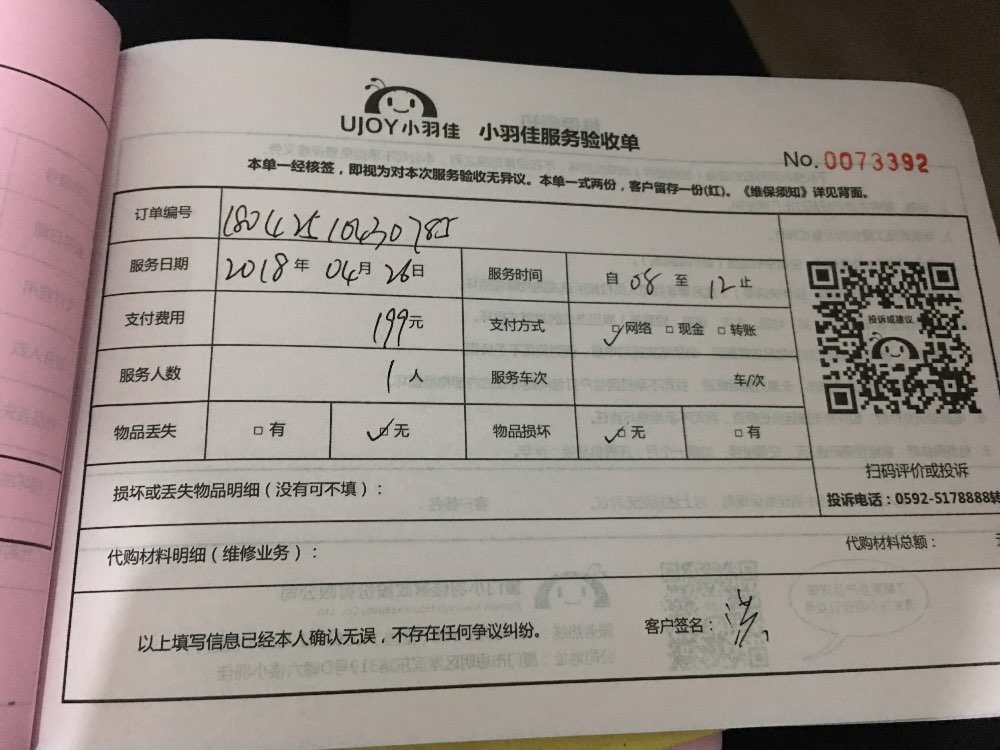 UJOY小羽佳 小羽佳服务验收单
No.0073392
本单一经核签，即视为对本次服务验收无异议。本单一式两份，客户留存一份(红)。《维保须知》详见背面。
订单编号 18042510430785
服务日期 2018年 04月 26日 服务时间 自 08 至 12止
支付费用 199元 支付方式 □网络 □现金 □转账
服务人数 1人 服务车次 车/次
物品丢失 □有 □无 物品损坏 □无 □有
投诉或建议
扫码评价或投诉
投诉电话：0592-5178888转
损坏或丢失物品明细（没有可不填）：
代购材料明细（维修业务）： 代购材料总额：
以上填写信息已经本人确认无误，不存在任何争议纠纷。 客户签名：